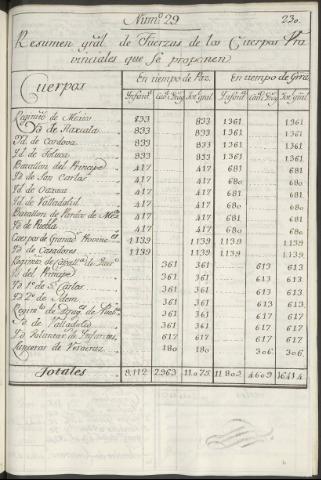 Num.º 29
230.
Resumen gräl de Fuerzas de los Cuerpos Pro
vinciales que se proponen
Cuerpos En tiempo de Paz. En tiempo de Grrä.
Infant.ª Cab.ª Drag.s Tot.l gral Infant.ª Cab.ª Drag.s Tot.l gral
Regim.to de Mexico 833 833 1361 1361.
Yd. de Tlaxcala 833 833 1361 1361.
Yd. de Cordova 833 833 1361 1361.
Yd. de Toluca 833 833 1361 1361.
Batallon del Principe 417 417 681 681
Yd. de San Carlos 417 417 680 680.
Yd. de Oaxaca 417 417 681 681
Yd. de Valladolid 417 417 680 680.
Batallon de Pardos de Mex.co 417 417 681 681
Yd. de Puebla 417 417 680 680.
Cuerpos de Granad.s Provinc.s 1139 1139 1139 1139.
Yd. de Cazadores 1139 1139 1139 1139.
Regim.to de Cavall.ª de 361 361 613 613.
Yd. del Principe 361 361 613 613
Yd. 1.º de S.n Carlos 361 361 613 613.
Yd. 2.º de Ydem 361 361 613 613.
Regim.to de Drag.s de Pueb.ª 361 361 617 617
Yd. de Valladolid 361 361 617 617
Yd. 617 617
Lanceros de Veracruz 180 180 306. 306.
Totales 8.112 2.963 11.075 11.809 4.609 16.414